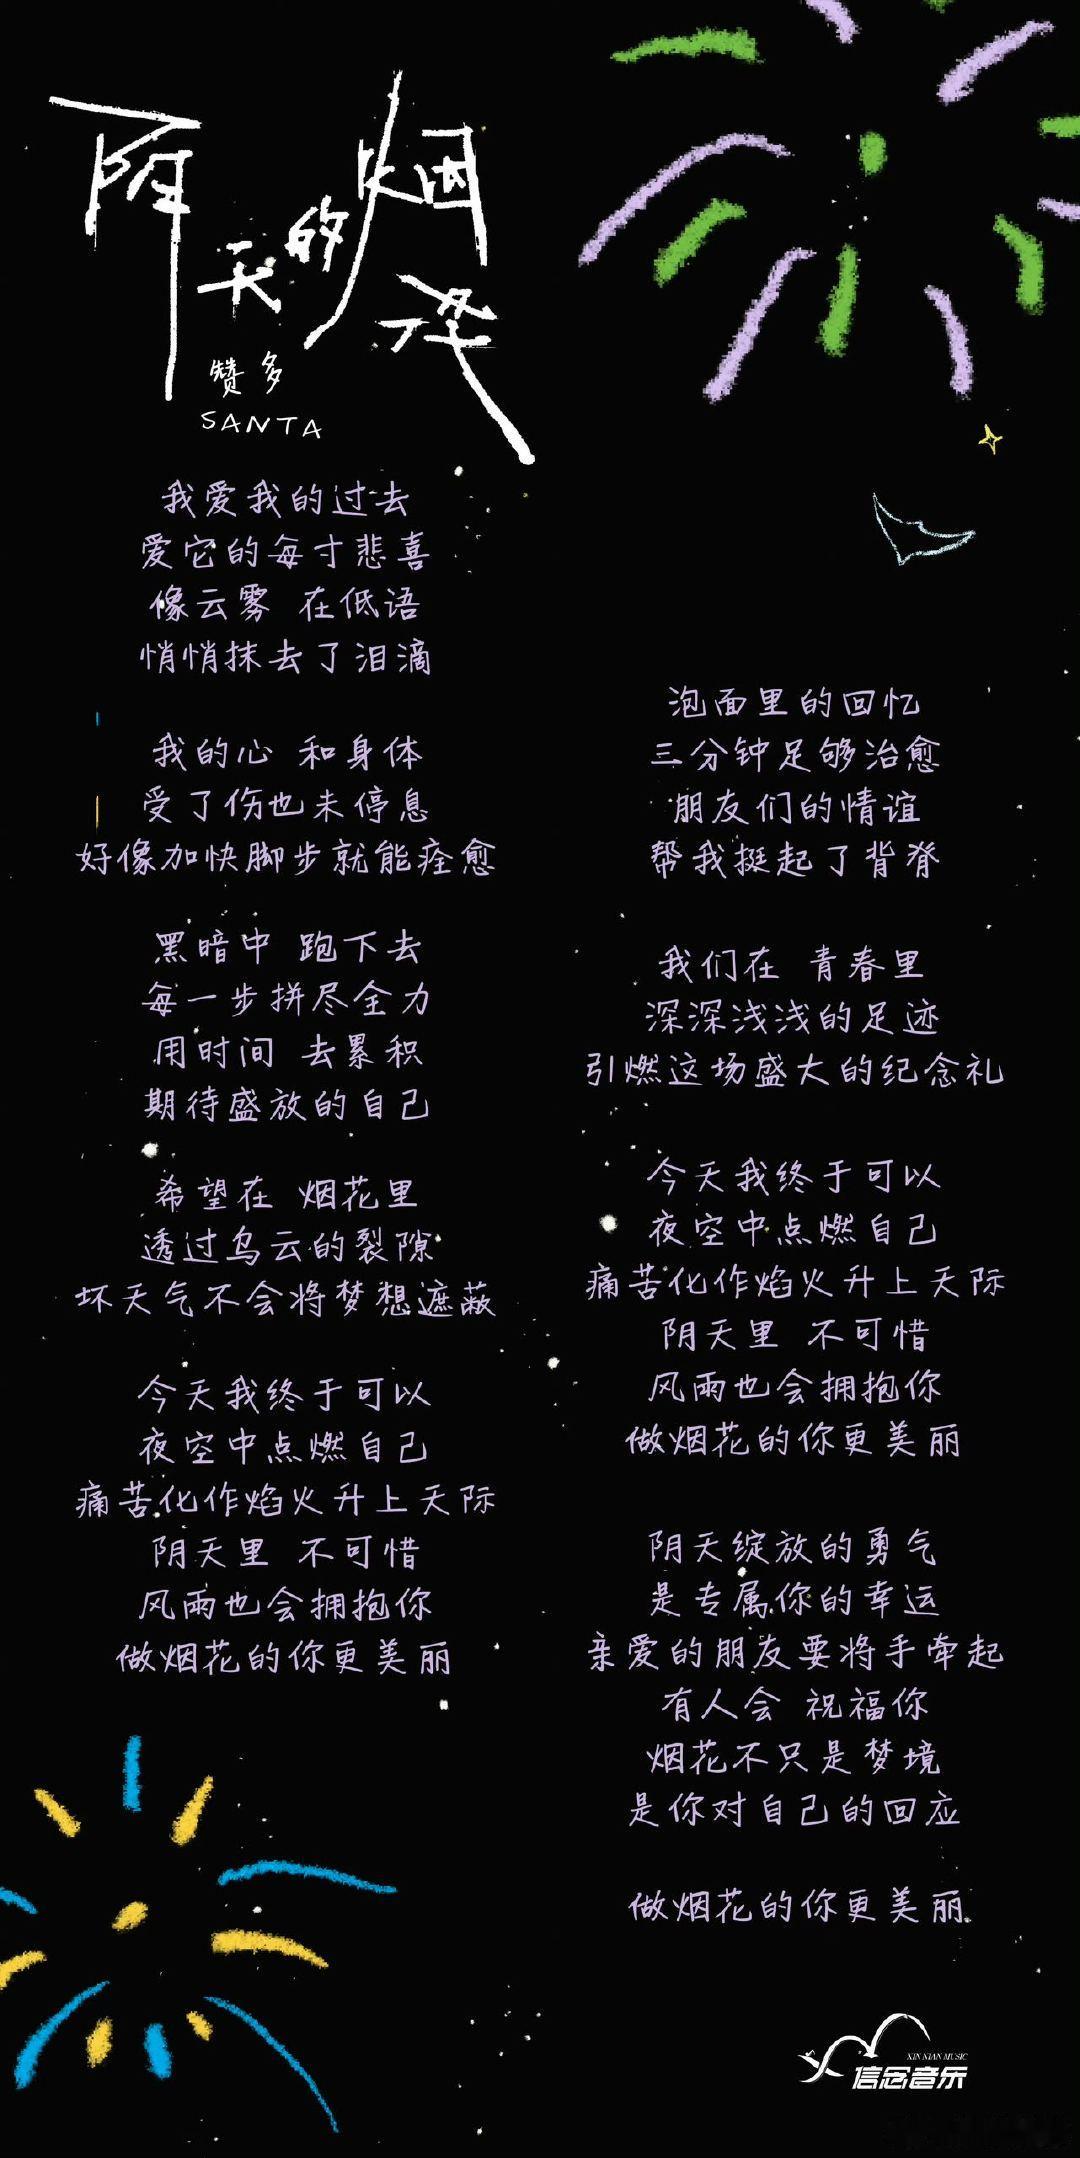 阴天的烟花
赞多
SANTA
我爱我的过去
爱它的每寸悲喜
像云雾 在低语
悄悄抹去了泪滴
我的心 和身体
受了伤也未停息
好像加快脚步就能痊愈
黑暗中 跑下去
每一步拼尽全力
用时间 去累积
期待盛放的自己
希望在 烟花里
透过乌云的裂隙
坏天气不会将梦想遮蔽
今天我终于可以
夜空中点燃自己
痛苦化作焰火升上天际
阴天里 不可惜
风雨也会拥抱你
做烟花的你更美丽
泡面里的回忆
三分钟足够治愈
朋友们的情谊
帮我挺起了背脊
我们在 青春里
深深浅浅的足迹
引燃这场盛大的纪念礼
今天我终于可以
夜空中点燃自己
痛苦化作焰火升上天际
阴天里 不可惜
风雨也会拥抱你
做烟花的你更美丽
阴天绽放的勇气
是专属你的幸运
亲爱的朋友要将手牵起
有人会 祝福你
烟花不只是梦境
是你对自己的回应
做烟花的你更美丽
XIN NIAN MUSIC
信念音乐